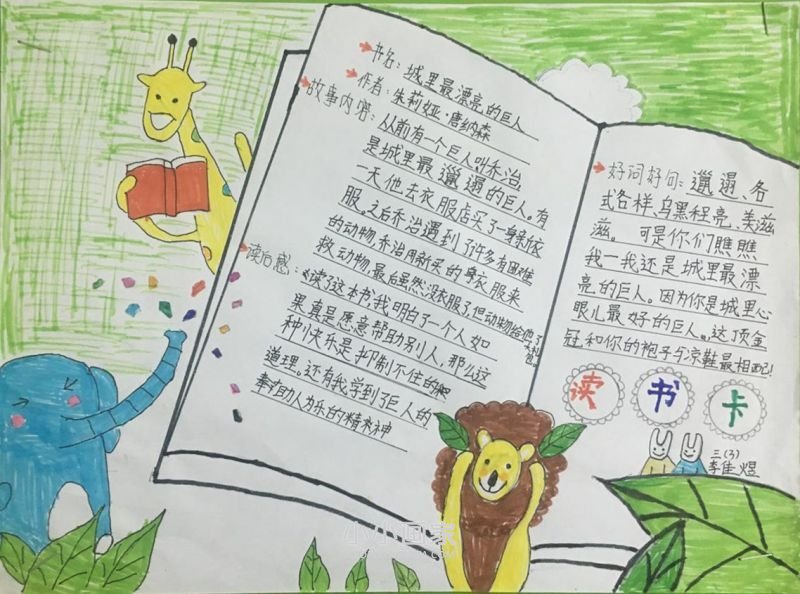 书名:城里最漂亮的巨人
作者:朱莉娅·唐纳森
故事内容:从前有一个巨人叫乔治,
是城里最邋遢的巨人。有
一天他去衣服店买了一身新衣
服。之后乔治遇到了许多有困难
的动物,乔治用新买的身衣服来
救动物,最后虽然没衣服了,但动物给他了大礼包。
读后感:《读了这本书》我明白了一个人如
果真是愿意帮助别人,那么这
种快乐是抑制不住的
道理,还有我学到了巨人的
助人为乐的精神
好词好句:邋遢、各
式各样、乌黑程亮、美滋
滋。可是你们瞧瞧
我一我还是城里最漂
亮的巨人。因为你是城里心
眼儿最好的巨人。这顶金
冠,和你的袍子与凉鞋最相配!
读 书 卡
三(3)
李佳煜
小小画家